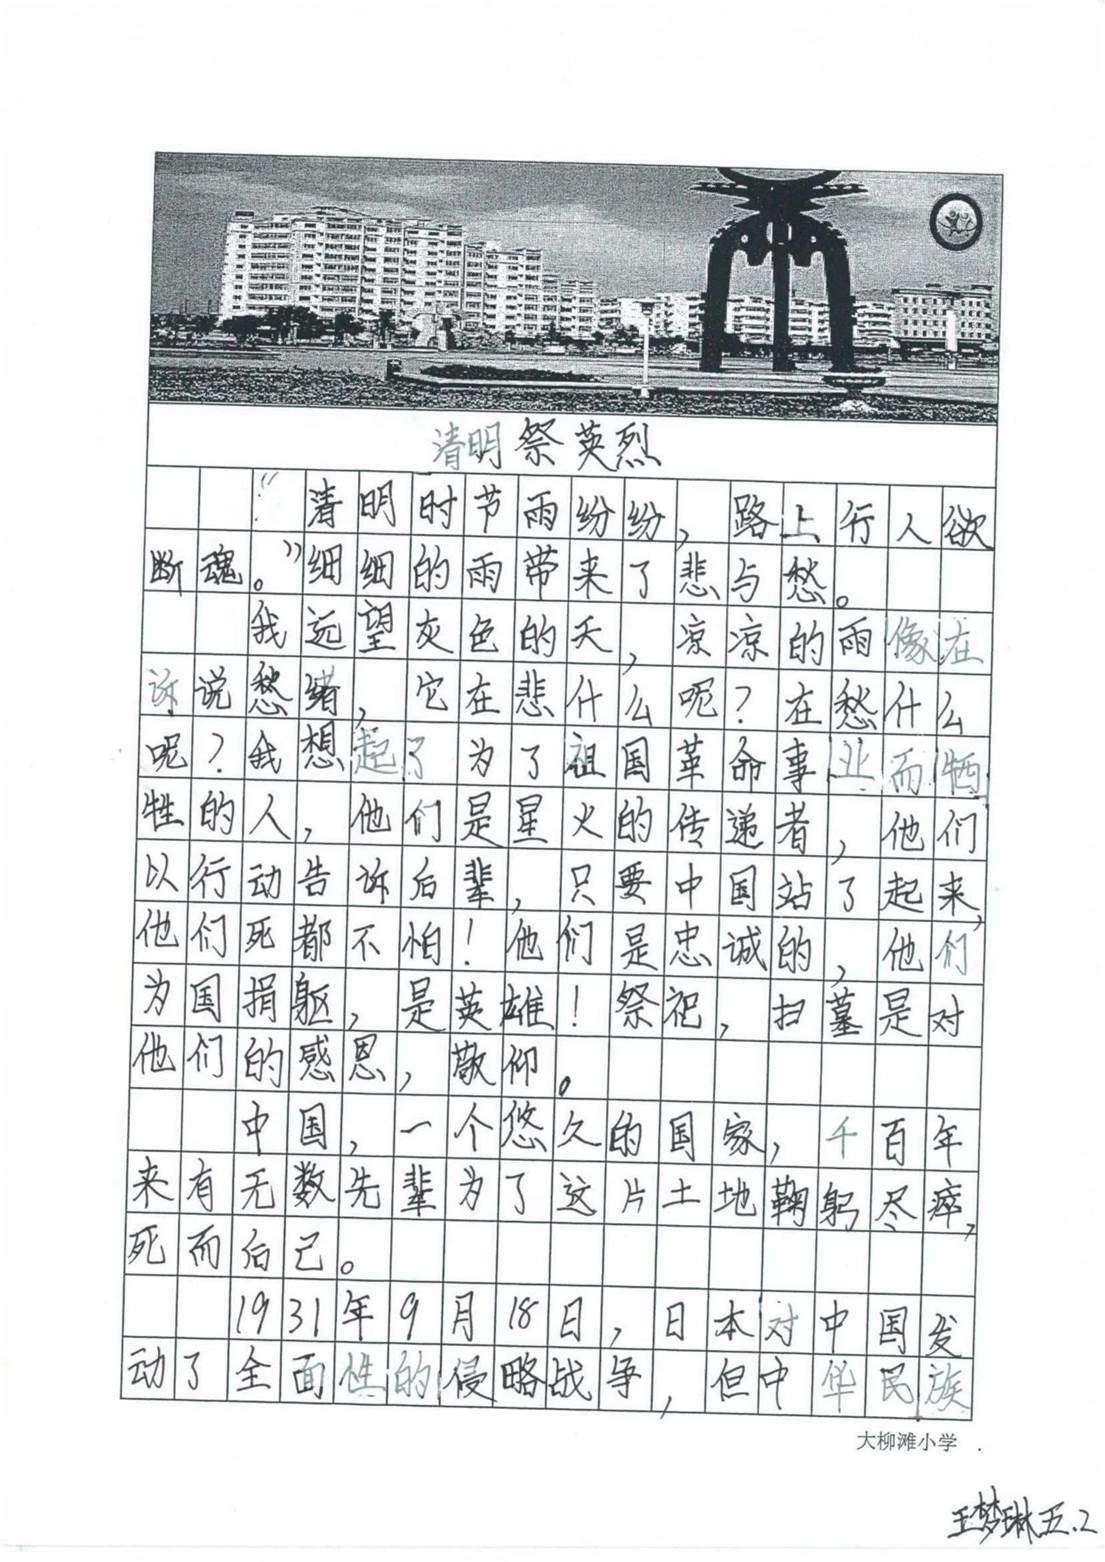 清明祭英烈
“清明时节雨纷纷，路上行人欲
断魂。”细细的雨带来了悲与愁。
我远望灰色的天，凉凉的雨像在
诉说愁绪，它在悲什么呢？在愁什么
呢？我想起了为了祖国革命事业而牺
牲的人，他们是星火的传递者，他们
以行动告诉后辈，只要中国站了起来，
他们死都不怕！他们是忠诚的，他们
为国捐躯，是英雄！祭祀，扫墓是对
他们的感恩，敬仰。
中国，一个悠久的国家，千百年
来有无数先辈为了这片土地鞠躬尽瘁，
死而后己。
1931年9月18日，日本对中国发
动了全面性的侵略战争，但中华民族
大柳滩小学
王梦琳五.2